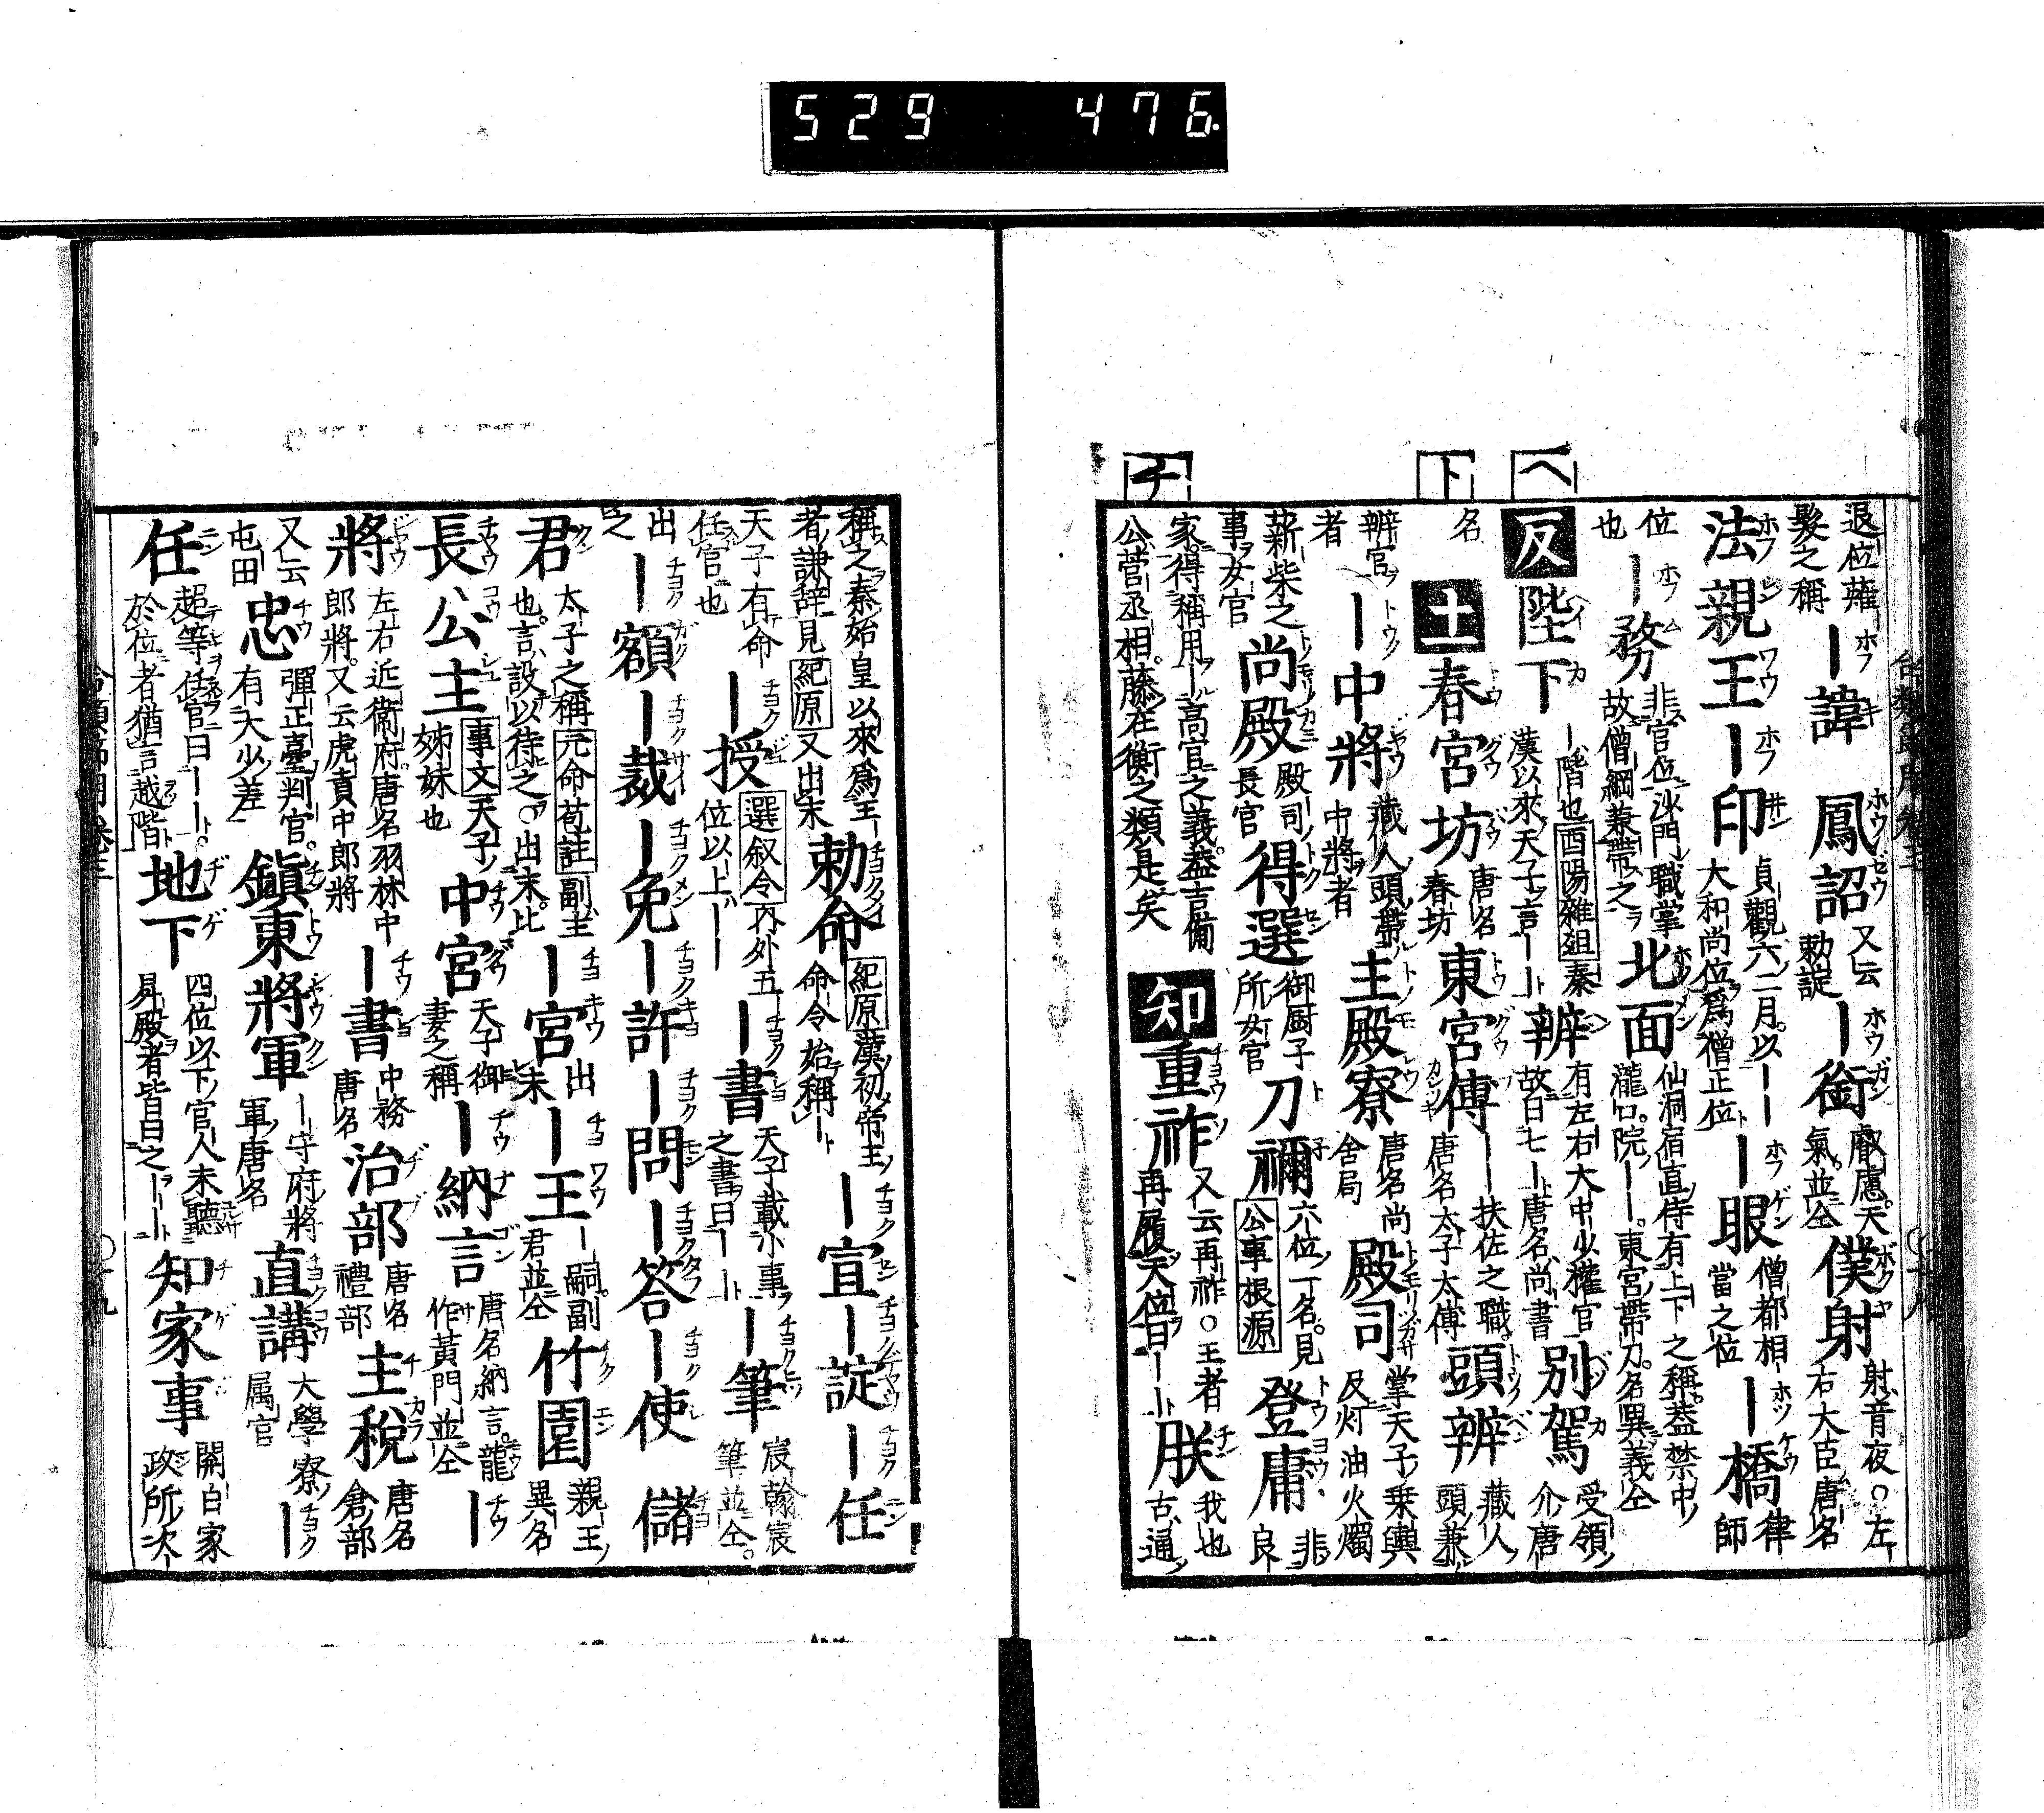 529 476
退位薙髮之稱 ｜諱 鳳詔 又云勅諚 ｜銜 叡慮。天氣。並仝 僕射 射音夜○左右大臣唐名
法親王 ｜印 貞觀六二月。以｜｜大和尚位爲僧正位 ｜眼 僧都相當之位 ｜橋 律師
位也 ｜務 非官位沙門職掌故僧綱兼帶之 北面 仙洞宿直侍有上下之稱。蓋禁中瀧口。院｜｜。東宮帶刀。名異義仝
ヘ
反 陛下 ｜階也酉陽雜俎秦漢以來天子言｜｜ 辨 有左右大中少權官故曰七｜唐名尚書 別駕 受領介唐
名
ト
土 春宮坊 唐名春坊 東宮傅 ｜｜扶佐之職。唐名太子太傅 頭辨 藏人頭兼
辨官者 ｜中將 藏人頭帶中將者 主殿寮 唐名尚舍局 殿司 掌天子乘輿及灯油火燭
薪柴之事女官 尚殿 殿司長官 得選 御厨子所女官 刀禰 六位一名。見公事根源 登庸 非良
家。得稱用｜高官之義。蓋吉備公、菅丞相。藤在衡之類是矣
チ
知 重祚 又云再祚○王者再履天位曰｜｜ 朕 我也古通
稱之秦始皇以來爲王｜者謙辭見紀原又出末 勅命 紀原漢初帝王命令始稱｜ ｜宣 ｜諚 ｜任
天子有命任官也 ｜授 選叙令內外五位以上｜｜ ｜書 天子載小事之書曰｜｜ ｜筆 宸翰宸筆並仝。
出之 ｜額 ｜裁 ｜免 ｜許 ｜問 ｜答 ｜使 儲
君 太子之稱元命苞註副主也。言設以待之。○出末。比 ｜宮 出末 ｜王 ｜嗣。副君並仝 竹園 親王異名
長公主 事文天子姊妹也 中宮 天子御妻之稱 ｜納言 唐名納言。龍作黃門並仝 ｜
將 左右近衞府。唐名羽林中郎將。又云虎賁中郎將 ｜書 中務唐名 治部 唐名禮部 主稅 唐名倉部
又云屯田 忠 彈正臺判官。有大少差 鎭東將軍 ｜守府將軍唐名 直講 大學寮属官 ｜
任 超等任官曰｜｜。於位者猶言越階 地下 四位以下官人未聽昇殿者皆曰之｜｜ 知家事 關白家政所次